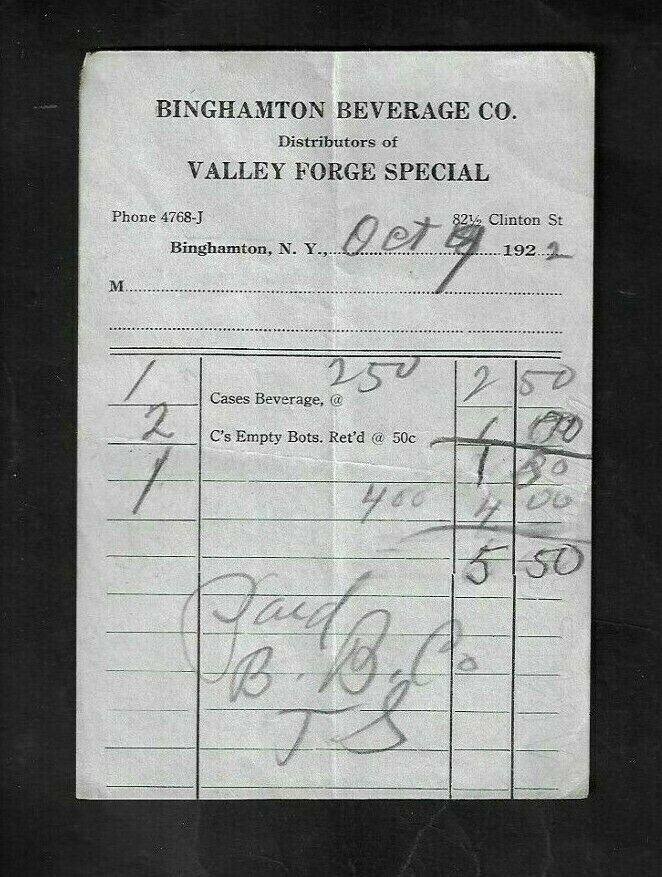 BINGHAMTON BEVERAGE CO.
Distributors of
VALLEY FORGE SPECIAL
Phone 4768-J 82½ Clinton St
Binghamton, N. Y., Oct 9 1922
M
1 Cases Beverage, @ 250 2 50
2 C's Empty Bots. Ret'd @ 50c 1 00
1 1 50
400 4 00
5 50
Paid
B. B. Co
J S